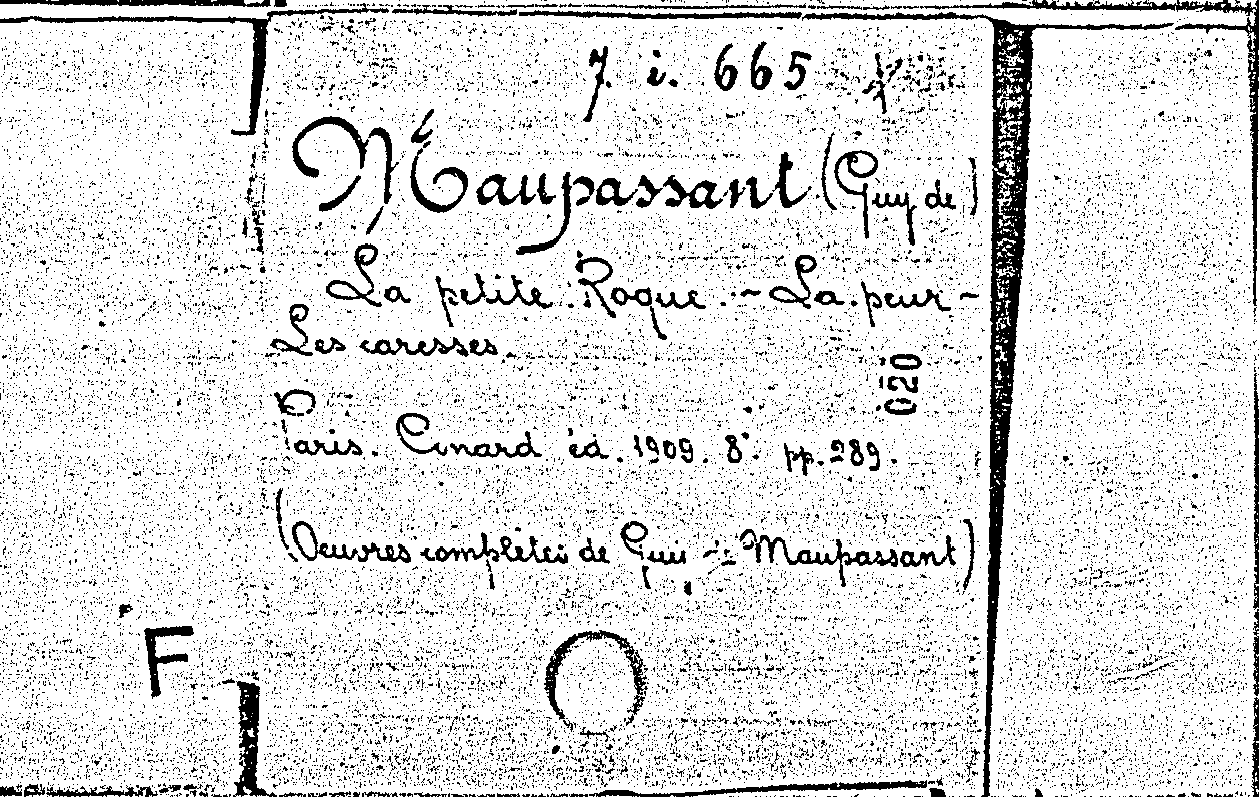 7. i. 665
Maupassant (Guy de)
La petite Roque. - La peur -
Les caresses.
020
Paris. Conard éd. 1909. 8° pp. 289.
(Oeuvres complètes de Guy de Maupassant)
F